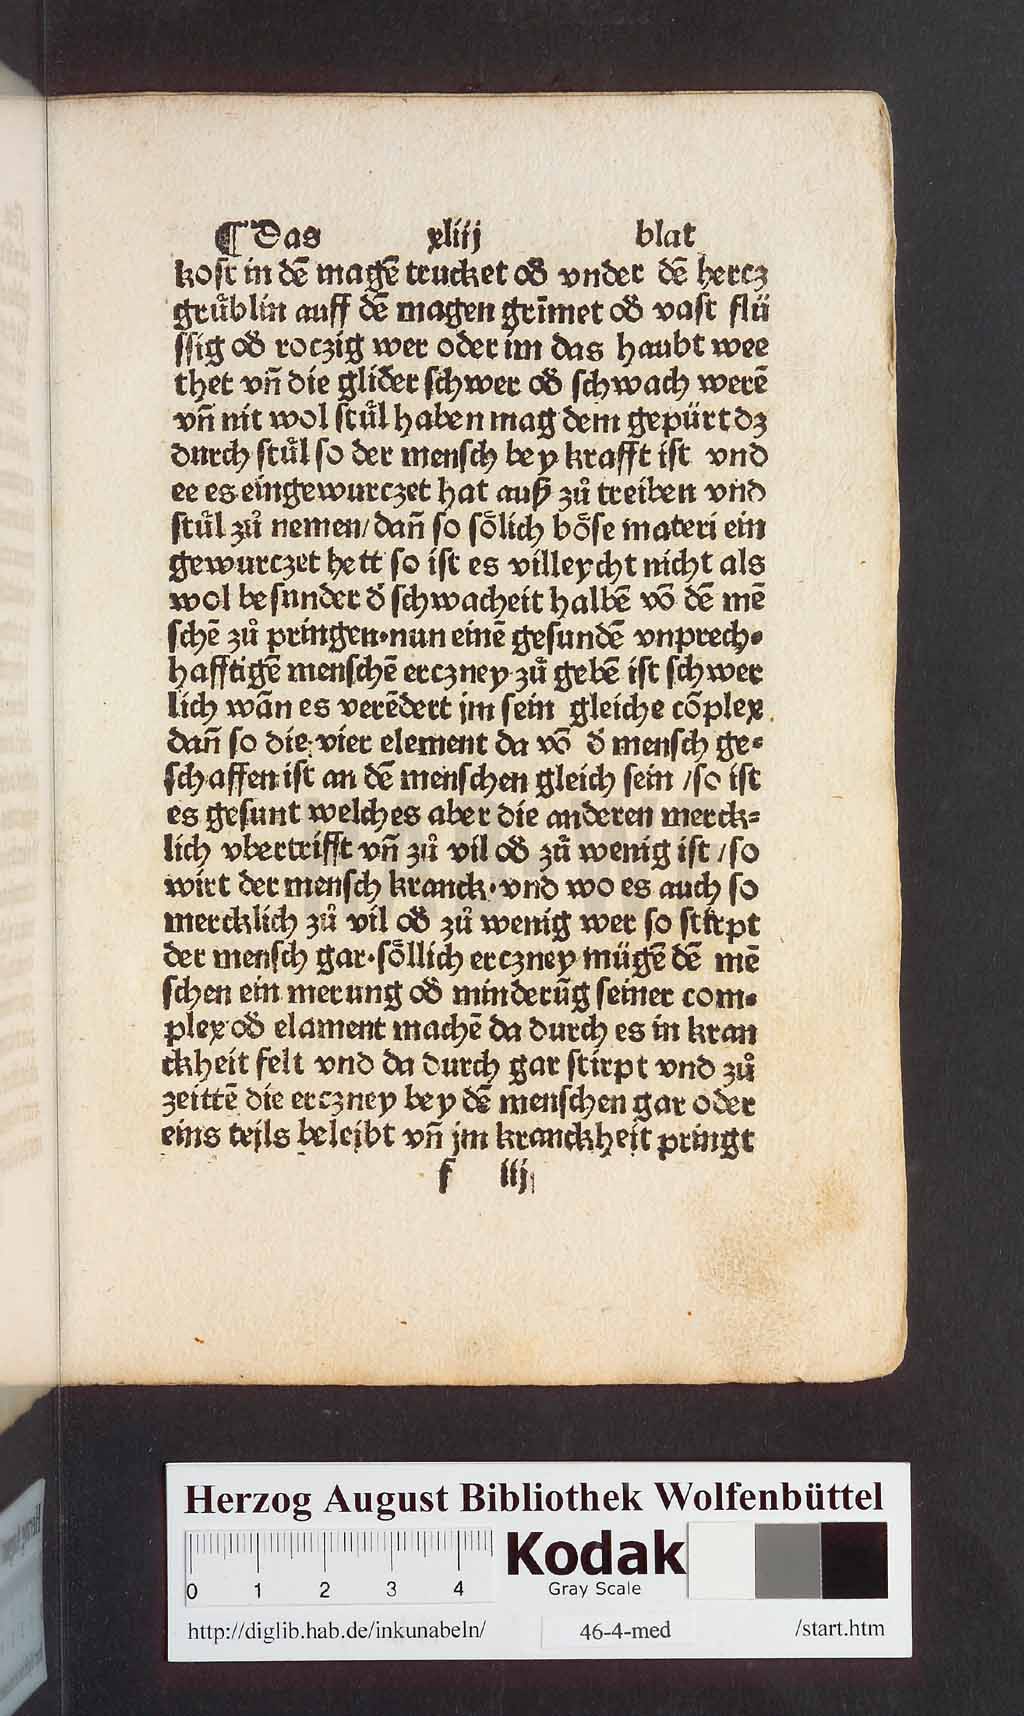 ¶ Das xliij blat
koſt in dē magē trucket od̕ vnder dē hercz
gruͤblin auff dē magen grīmet od̕ vaſt flü
ſſig od̕ roczig wer oder im das haubt wee
thet vn̄ die glider ſchwer od̕ ſchwach werē
vn̄ nit wol ſtuͤl haben mag dem gepürt dz
durch ſtuͤl ſo der menſch bey krafft iſt vnd
ee es eingewurczet hat auß zů treiben vnd
ſtuͤl zů nemen / dan̄ ſo ſoͤlich boͤſe materi ein
gewurczet hett ſo iſt es villeycht nicht als
wol beſunder d̕ ſchwacheit halbē vō dē mē
ſchē zů pringen · nun einē geſundē vnprech⸗
hafftigē menſchē erczney zů gebē iſt ſchwer
lich wān es verēdert jm ſein gleiche cōplex
dan̄ ſo die vier element da vō d̕ menſch ge⸗
ſchaffen iſt an dē menſchen gleich ſein / ſo iſt
es geſunt welches aber die anderen merck⸗
lich vbertrifft vn̄ zů vil od̕ zů wenig iſt / ſo
wirt der menſch kranck · vnd wo es auch ſo
mercklich zů vil od̕ zů wenig wer ſo ſtirpt
der menſch gar · ſoͤllich erczney mügē dē mē
ſchen ein merung od̕ minderūg ſeiner com⸗
plex od̕ elament machē da durch es in kran
ckheit felt vnd da durch gar ſtirpt vnd zů
zeittē die erczney bey dē menſchen gar oder
eins teils beleibt vn̄ jm kranckheit pringt
f iij
Herzog August Bibliothek Wolfenbüttel
0 1 2 3 4
Kodak
Gray Scale
http://diglib.hab.de/inkunabeln/ 46-4-med /start.htm